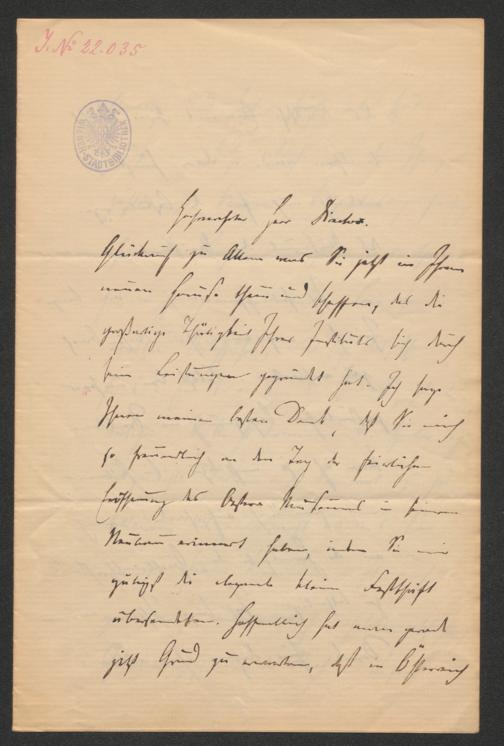 J. № 22.035
WIENER STADTBIBLIOTHEK
Hochverehrter Herr Director.
Glückwunsch zu Allem was Sie jetzt in Ihrem
neuen Hause thun und schaffen, das die
großartige Thätigkeit Ihres Instituts sich durch
seine Leistungen gegründet hat. Ich sage
Ihnen meinen besten Dank, daß Sie mich
so freundlich an den Tag der feierlichen
Eröffnung des Oesterr. Museums in seinem
Neubau erinnert haben, indem Sie mir
gütigst die elegante kleine Festschrift
übersendeten. Hoffentlich hat man gerade
jetzt Grund zu erwarten, daß in Österreich